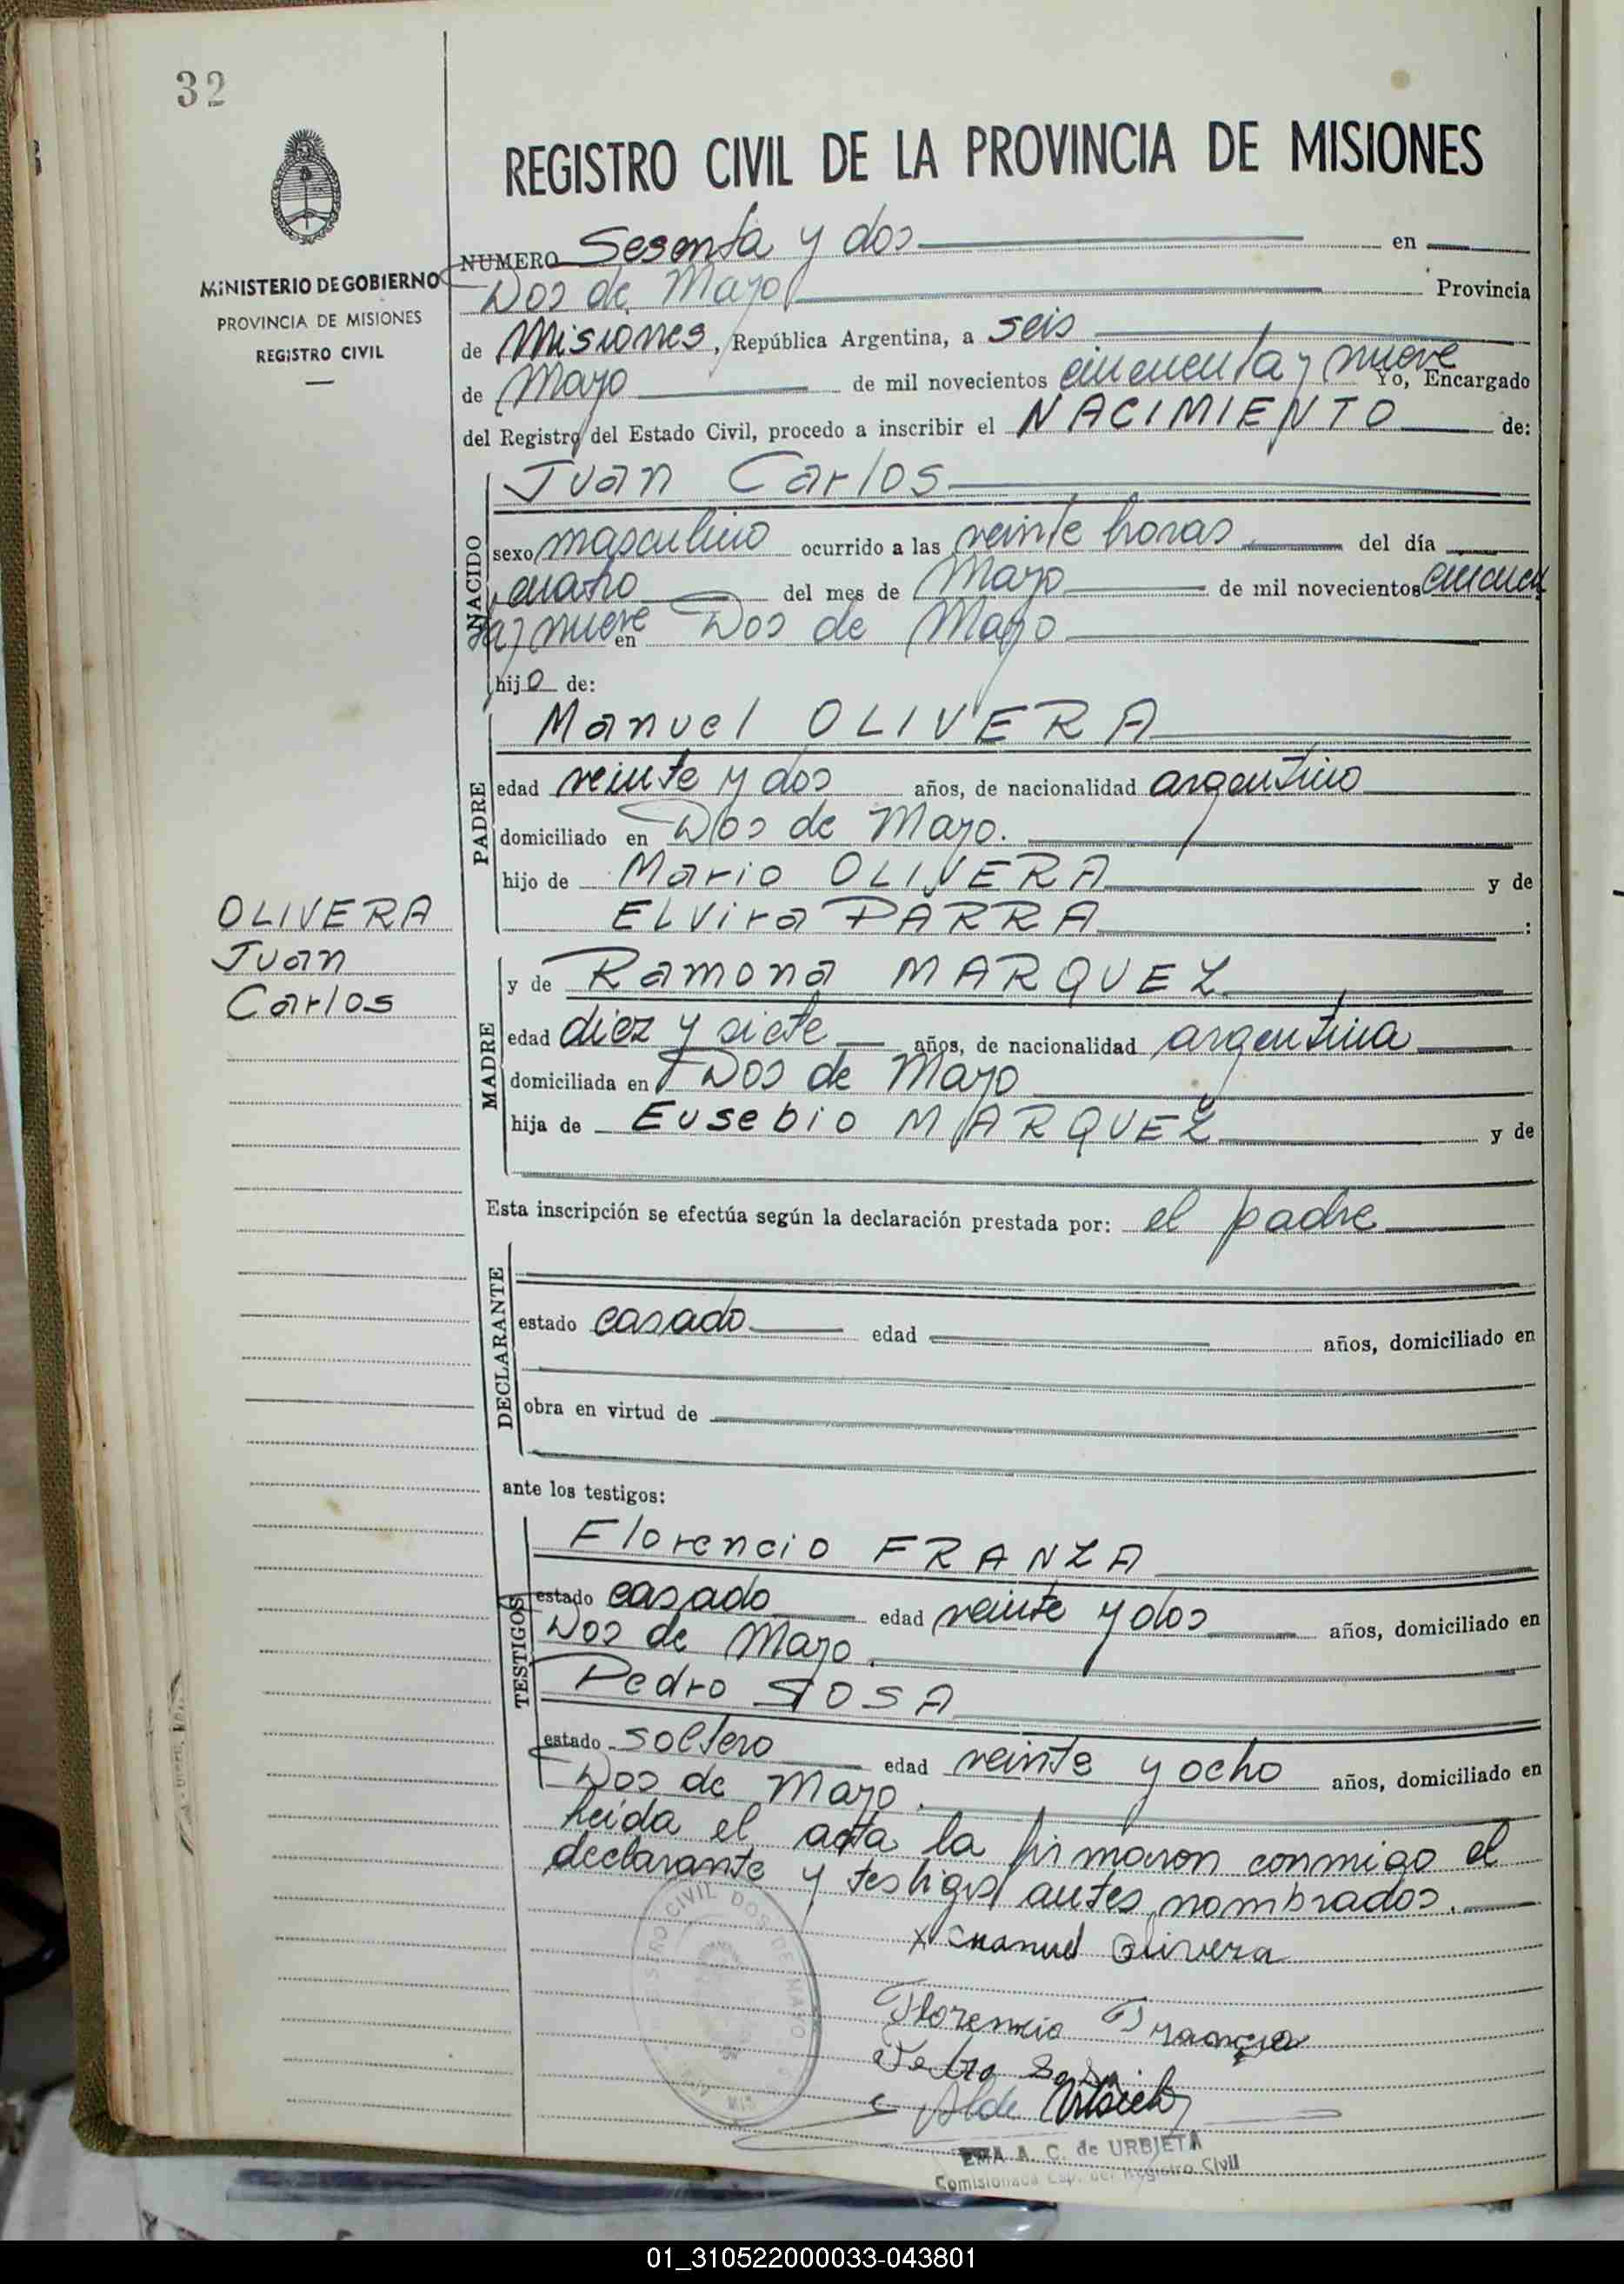 32
REGISTRO CIVIL DE LA PROVINCIA DE MISIONES
MINISTERIO DE GOBIERNO
PROVINCIA DE MISIONES
REGISTRO CIVIL
NUMERO Sesenta y dos en
Dos de Mayo Provincia
de Misiones, República Argentina, a seis
de Mayo de mil novecientos cincuenta y nueve Yo, Encargado
del Registro del Estado Civil, procedo a inscribir el NACIMIENTO de:
NACIDO
Juan Carlos
sexo masculino ocurrido a las veinte horas del día
cuatro del mes de Mayo de mil novecientos cincuen
ta y nueve en Dos de Mayo
hijo de:
PADRE
Manuel OLIVERA
edad veinte y dos años, de nacionalidad argentino
domiciliado en Dos de Mayo.
hijo de Mario OLIVERA y de
Elvira PARRA :
OLIVERA
Juan
Carlos
MADRE
y de Ramona MARQUEZ
edad diez y siete años, de nacionalidad argentina
domiciliada en Dos de Mayo
hija de Eusebio MARQUEZ y de
Esta inscripción se efectúa según la declaración prestada por: el padre
DECLARANTE
estado casado edad años, domiciliado en
obra en virtud de
ante los testigos:
TESTIGOS
Florencio FRANZA
estado casado edad veinte y dos años, domiciliado en
Dos de Mayo.
Pedro SOSA
estado soltero edad veinte y ocho años, domiciliado en
Dos de Mayo.
Leída el acta la firmaron conmigo el
declarante y testigos antes nombrados.
x Manuel Olivera
Florencio
Pedro Sosa
CIVIL DOS DE MAYO
MIS
A. C. de URBIETA
Comisionada Esp. del Registro Civil
01_310522000033-043801